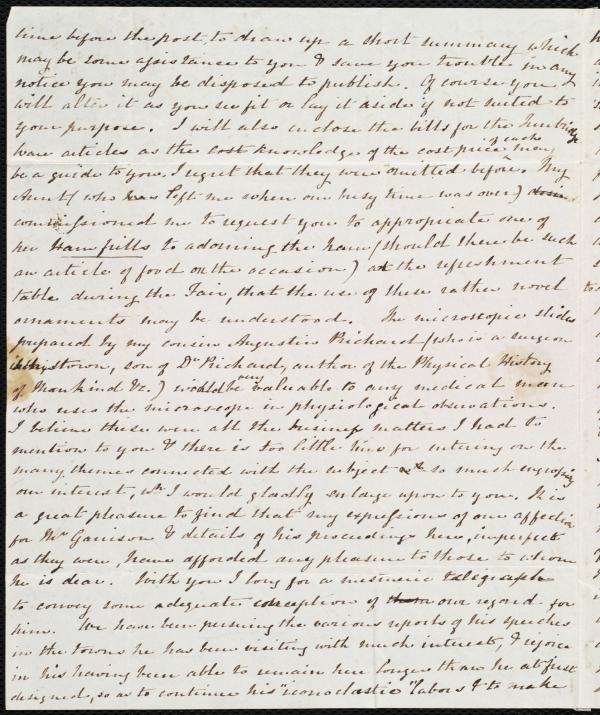 time before the post, to draw up a short summary which
may be some assistance to you & save you trouble in any
notice you may be disposed to publish. Of course you
will alter it as you see fit or lay it aside if not suited to
your purpose. I will also inclose the bills for the Tunbridge
ware articles as the cost knowledge of the cost price of each may
be a guide to you. I regret that they were omitted before. My
Aunt (who has left me when our busy time was over)
commissioned me to request you to appropriate one of
her Ham frills to adorning the ham (should there be such
an article of food on the occasion) at the refreshment
table during the Fair, that the use of these rather novel
ornaments may be understood. The microscopic slides
prepared by my cousin Augustin Prichard (who is a surgeon
in this town, son of Dr Prichard, author of the Physical History
of Mankind &c.) would be very valuable to any medical man
who uses the microscope in physiological observations.
I believe these were all the business matters I had to
mention to you & there is too little time for entering on the
many themes connected with the subject so much engrossing
our interest, wh I would gladly enlarge upon to you. It is
a great pleasure to find that my expressions of our affection
for Mr Garrison & details of his proceedings here, imperfect
as they were, have afforded any pleasure to those to whom
he is dear. With you I long for a mesmeric telegraph
to convey some adequate conception of them our regard for
him. We have been perusing the various reports of his speeches
in the towns he has been visiting with much interest, & rejoice
in his having been able to remain here longer than he at first
designed, so as to continue his "iconoclastic" labors & to make